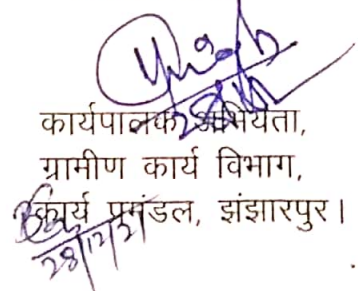 कार्यपालक अभियंता,
ग्रामीण कार्य विभाग,
कार्य प्रमंडल, झंझारपुर।
28/12/21